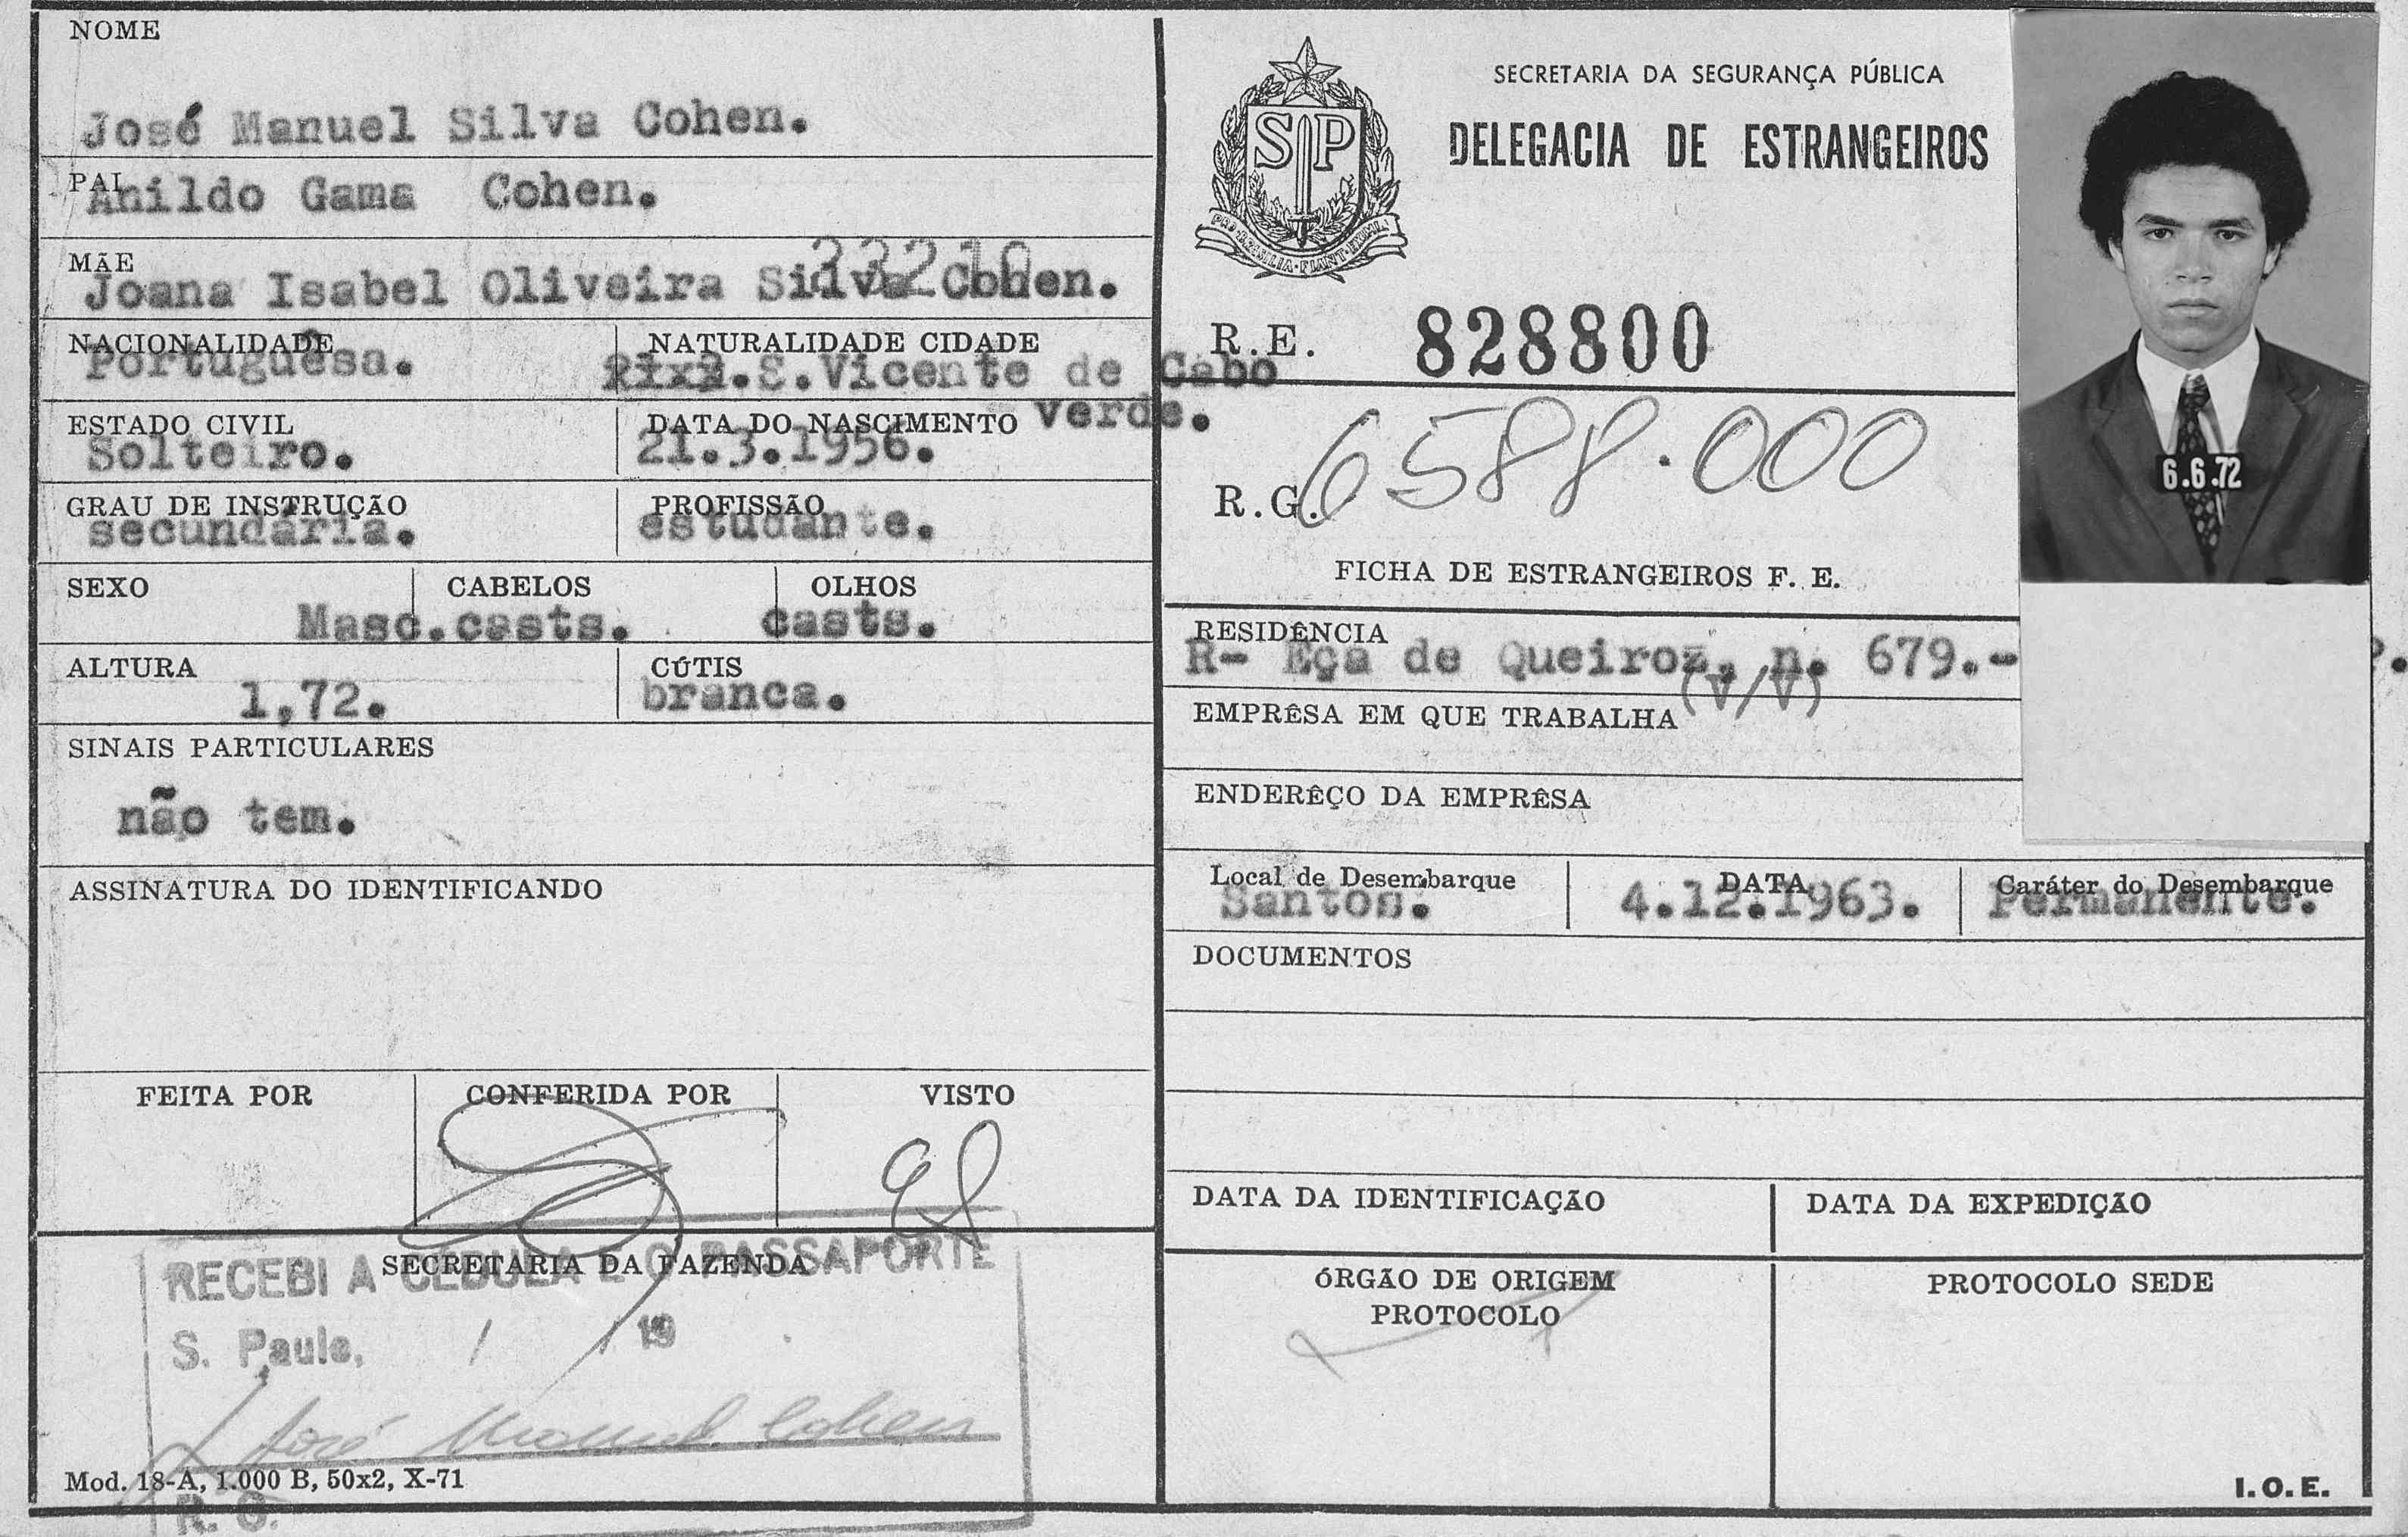 NOME
José Manuel Silva Cohen.
PAI
Anildo Gama Cohen.
MÃE
Joana Isabel Oliveira Silva Cohen.
23210
NACIONALIDADE
Portuguêsa.
NATURALIDADE CIDADE
S.Vicente de Cabo
verde.
ESTADO CIVIL
Solteiro.
DATA DO NASCIMENTO
21.3.1956.
GRAU DE INSTRUÇÃO
secundária.
PROFISSÃO
estudante.
SEXO
Masc.
CABELOS
casts.
OLHOS
casts.
ALTURA
1,72.
CÚTIS
branca.
SINAIS PARTICULARES
não tem.
ASSINATURA DO IDENTIFICANDO
FEITA POR
CONFERIDA POR
VISTO
SECRETARIA DA FAZENDA
RECEBI A CÉDULA E O PASSAPORTE
S. Paulo, / / 19
José Manuel Cohen
Mod. 18-A, 1.000 B, 50x2, X-71
R. G.
SECRETARIA DA SEGURANÇA PÚBLICA
DELEGACIA DE ESTRANGEIROS
SP
PRO·BRASILIA·FIANT·EXIMIA
R.E. 828800
R.G. 6588.000
FICHA DE ESTRANGEIROS F. E.
6.6.72
RESIDÊNCIA
R- Eça de Queiroz, n. 679.-
(V/V)
EMPRÊSA EM QUE TRABALHA
ENDERÊÇO DA EMPRÊSA
Local de Desembarque
Santos.
DATA
4.12.1963.
Caráter do Desembarque
Permanente.
DOCUMENTOS
DATA DA IDENTIFICAÇÃO
DATA DA EXPEDIÇÃO
ÓRGÃO DE ORIGEM
PROTOCOLO
PROTOCOLO SEDE
I.O.E.